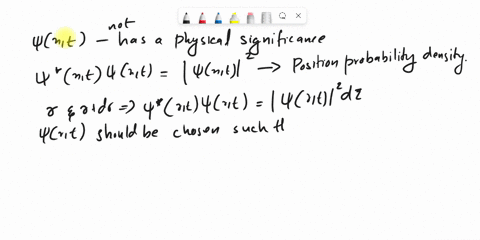 ψ(x,t) – not has a physical significance
ψ*(x,t) ψ(x,t) = |ψ(x,t)|² → Position probability density.
r & r+dr ⇒ ψ*(r,t) ψ(r,t) = |ψ(r,t)|² dτ
ψ(r,t) should be chosen such th